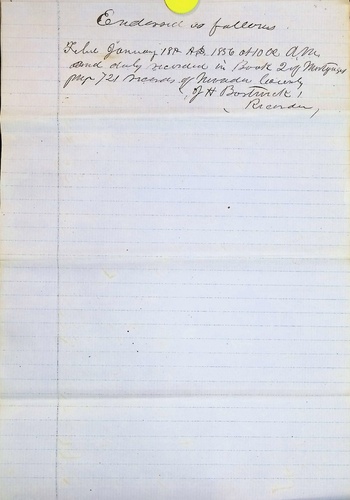 Endorsed as follows
Filed January 18th A.D. 1856 at 10 O.C. A.M.
and duly recorded in Book 2 of Mortgages
page 121 records of Nevada County
J H Bostwick
Recorder